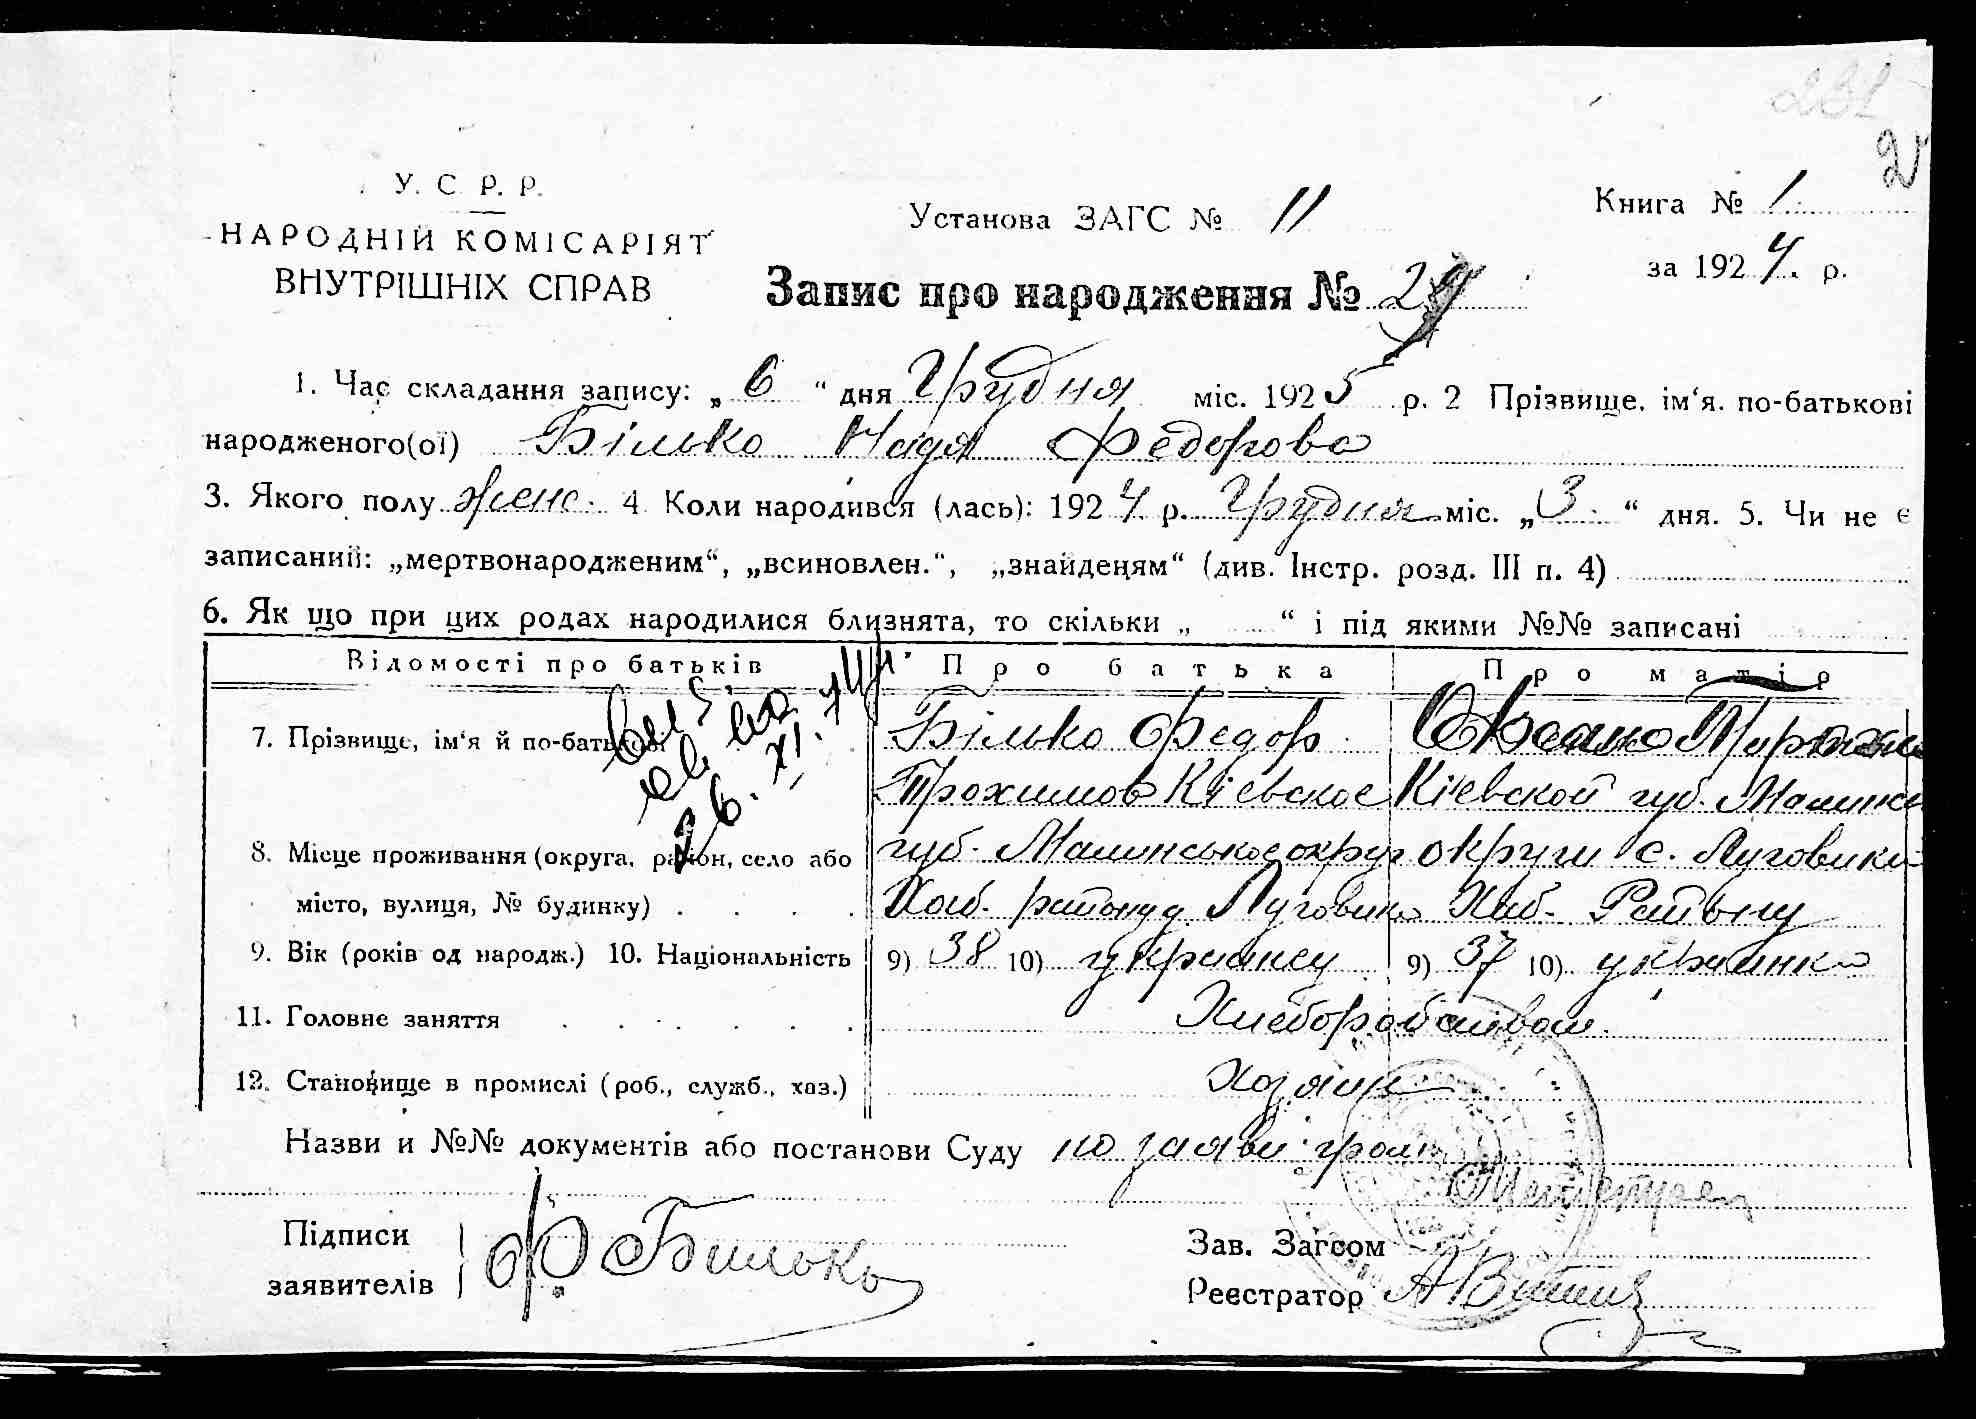 231
2
У. С. Р. Р.
НАРОДНІЙ КОМІСАРІЯТ
ВНУТРІШНІХ СПРАВ
Установа ЗАГС № 11
Книга № 1
за 1924 р.
Запис про народження № 29
1. Час складання запису: „ 6 “ дня Грудня міс. 1925 р. 2 Прізвище, ім‘я, по-батькові
народженого(ої) Білько Надя Федорова
3. Якого полу женс. 4 Коли народився (лась): 1924 р. Грудня міс. „ 3 “ дня. 5. Чи не є
записаний: „мертвонародженим“, „всиновлен.“, „знайденям“ (див. Інстр. розд. III п. 4)
6. Як що при цих родах народилися близнята, то скільки „ “ і під якими №№ записані
Відомості про батьків Про батька Про матір
7. Прізвище, ім‘я й по-батькові Білько Федор
Трохимов Кіевскос Кіевской губ.
8. Місце проживання (округа, район, село або губ. округ округи с. Луговики
місто, вулиця, № будинку) району Луговики Району
9. Вік (років од народж.) 10. Національність 9) 38 10) 9) 37 10) украинка
11. Головне заняття
12. Становище в промислі (роб., служб., хаз.) Хозяин
Назви и №№ документів або постанови Суду по заяві
26. XI. 74
Підписи
заявителів Ф. Билько
Зав. Загсом
Реєстратор